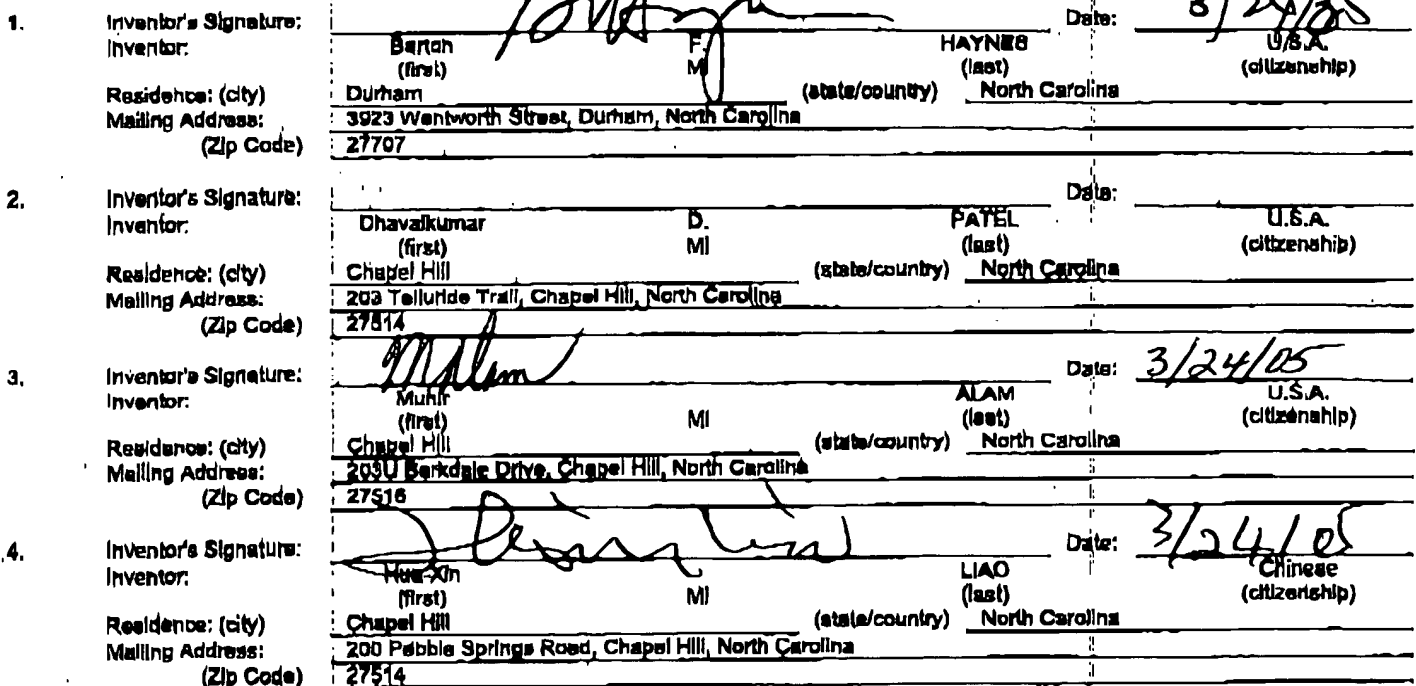 1. Inventor's Signature: Date:
Inventor: Barton F. HAYNES U.S.A.
(first) MI (last) (citizenship)
Residence: (city) Durham (state/country) North Carolina
Mailing Address: 3923 Wentworth Street, Durham, North Carolina
(Zip Code) 27707
2. Inventor's Signature: Date:
Inventor: Dhavalkumar D. PATEL U.S.A.
(first) MI (last) (citizenship)
Residence: (city) Chapel Hill (state/country) North Carolina
Mailing Address: 203 Telluride Trail, Chapel Hill, North Carolina
(Zip Code) 27514
3. Inventor's Signature: Date: 3/24/05
Inventor: Munir ALAM U.S.A.
(first) MI (last) (citizenship)
Residence: (city) Chapel Hill (state/country) North Carolina
Mailing Address: Barkdale Drive, Chapel Hill, North Carolina
(Zip Code) 27516
4. Inventor's Signature: Date: 3/24/05
Inventor: Hua-Xin LIAO Chinese
(first) MI (last) (citizenship)
Residence: (city) Chapel Hill (state/country) North Carolina
Mailing Address: 200 Pebble Springs Road, Chapel Hill, North Carolina
(Zip Code) 27514